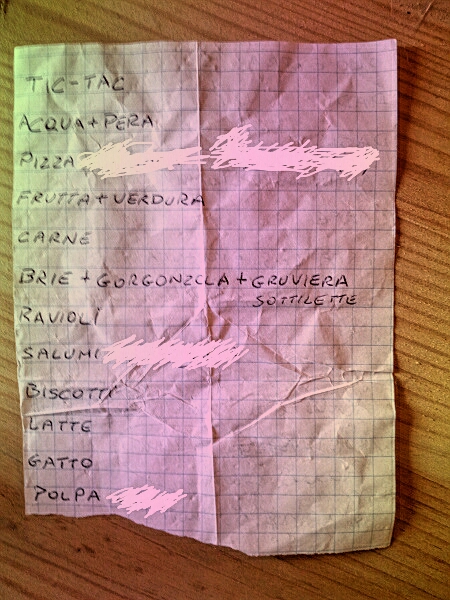 TIC-TAC
ACQUA+PERA
PIZZA
FRUTTA+VERDURA
CARNE
BRIE + GORGONZOLA + GRUVIERA
SOTTILETTE
RAVIOLI
SALUMI
BISCOTTI
LATTE
GATTO
POLPA